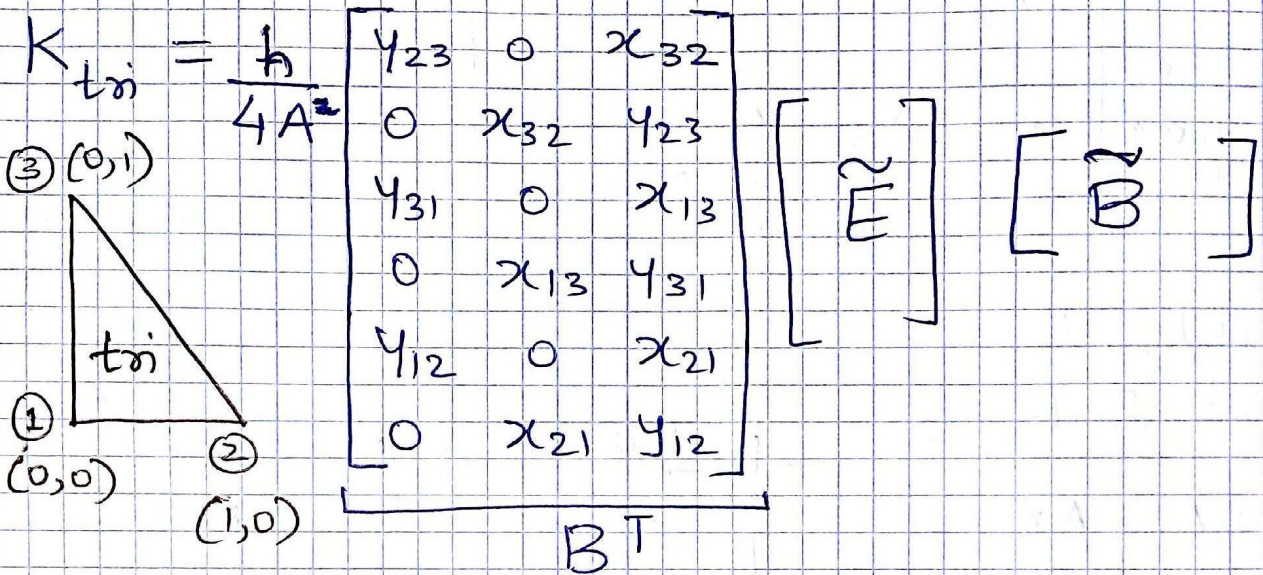 K_tri = h / 4A [ y23 0 x32 ] [ Ẽ ] [ B̃ ]
0 x32 y23
y31 0 x13
0 x13 y31
y12 0 x21
0 x21 y12
B^T
③ (0,1)
tri
①
(0,0)
②
(1,0)